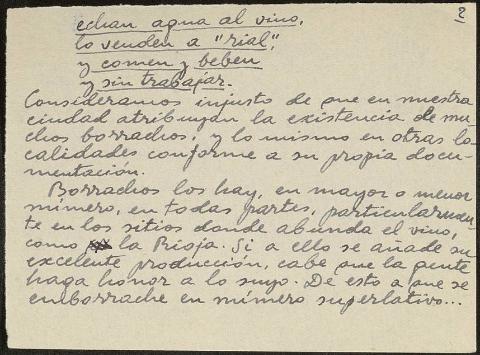 2
echan agua al vino,
lo venden a "rial",
y comen y beben
y sin trabajar.
Consideramos injusto de que en nuestra
ciudad atribuyan la existencia de mu-
chos borrachos, y lo mismo en otras lo-
calidades conforme a su propia docu-
mentación.
Borrachos los hay, en mayor o menor
número, en todas partes, particularmen-
te en los sitios donde abunda el vino,
como la Rioja. Si a ello se añade su
excelente producción, cabe que la gente
haga honor a lo suyo. De esto a que se
emborrache en número superlativo...